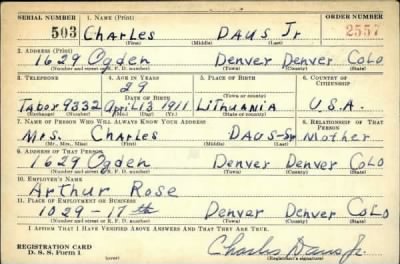 SERIAL NUMBER 1. NAME (Print) ORDER NUMBER
503 Charles Daus Jr 2557
(First) (Middle) (Last)
2. ADDRESS (Print)
1629 Ogden Denver Denver Colo
(Number and street or R. F. D. number) (Town) (County) (State)
3. TELEPHONE 4. AGE IN YEARS 5. PLACE OF BIRTH 6. COUNTRY OF CITIZENSHIP
29
Tabor 9332 April 13 1911 Lithuania U.S.A.
(Exchange) (Number) (Mo.) (Day) (Yr.) (State or country)
7. NAME OF PERSON WHO WILL ALWAYS KNOW YOUR ADDRESS 8. RELATIONSHIP OF THAT PERSON
Mrs. Charles Daus-Sr Mother
(Mr., Mrs., Miss) (First) (Middle) (Last)
9. ADDRESS OF THAT PERSON
1629 Ogden Denver Denver Colo
(Number and street or R. F. D. number) (Town) (County) (State)
10. EMPLOYER'S NAME
Arthur Rose
11. PLACE OF EMPLOYMENT OR BUSINESS
1029-17th Denver Denver Colo
(Number and street or R. F. D. number) (Town) (County) (State)
I AFFIRM THAT I HAVE VERIFIED ABOVE ANSWERS AND THAT THEY ARE TRUE.
REGISTRATION CARD
D. S. S. Form 1 Charles Daus Jr.
(over) (Registrant's signature)